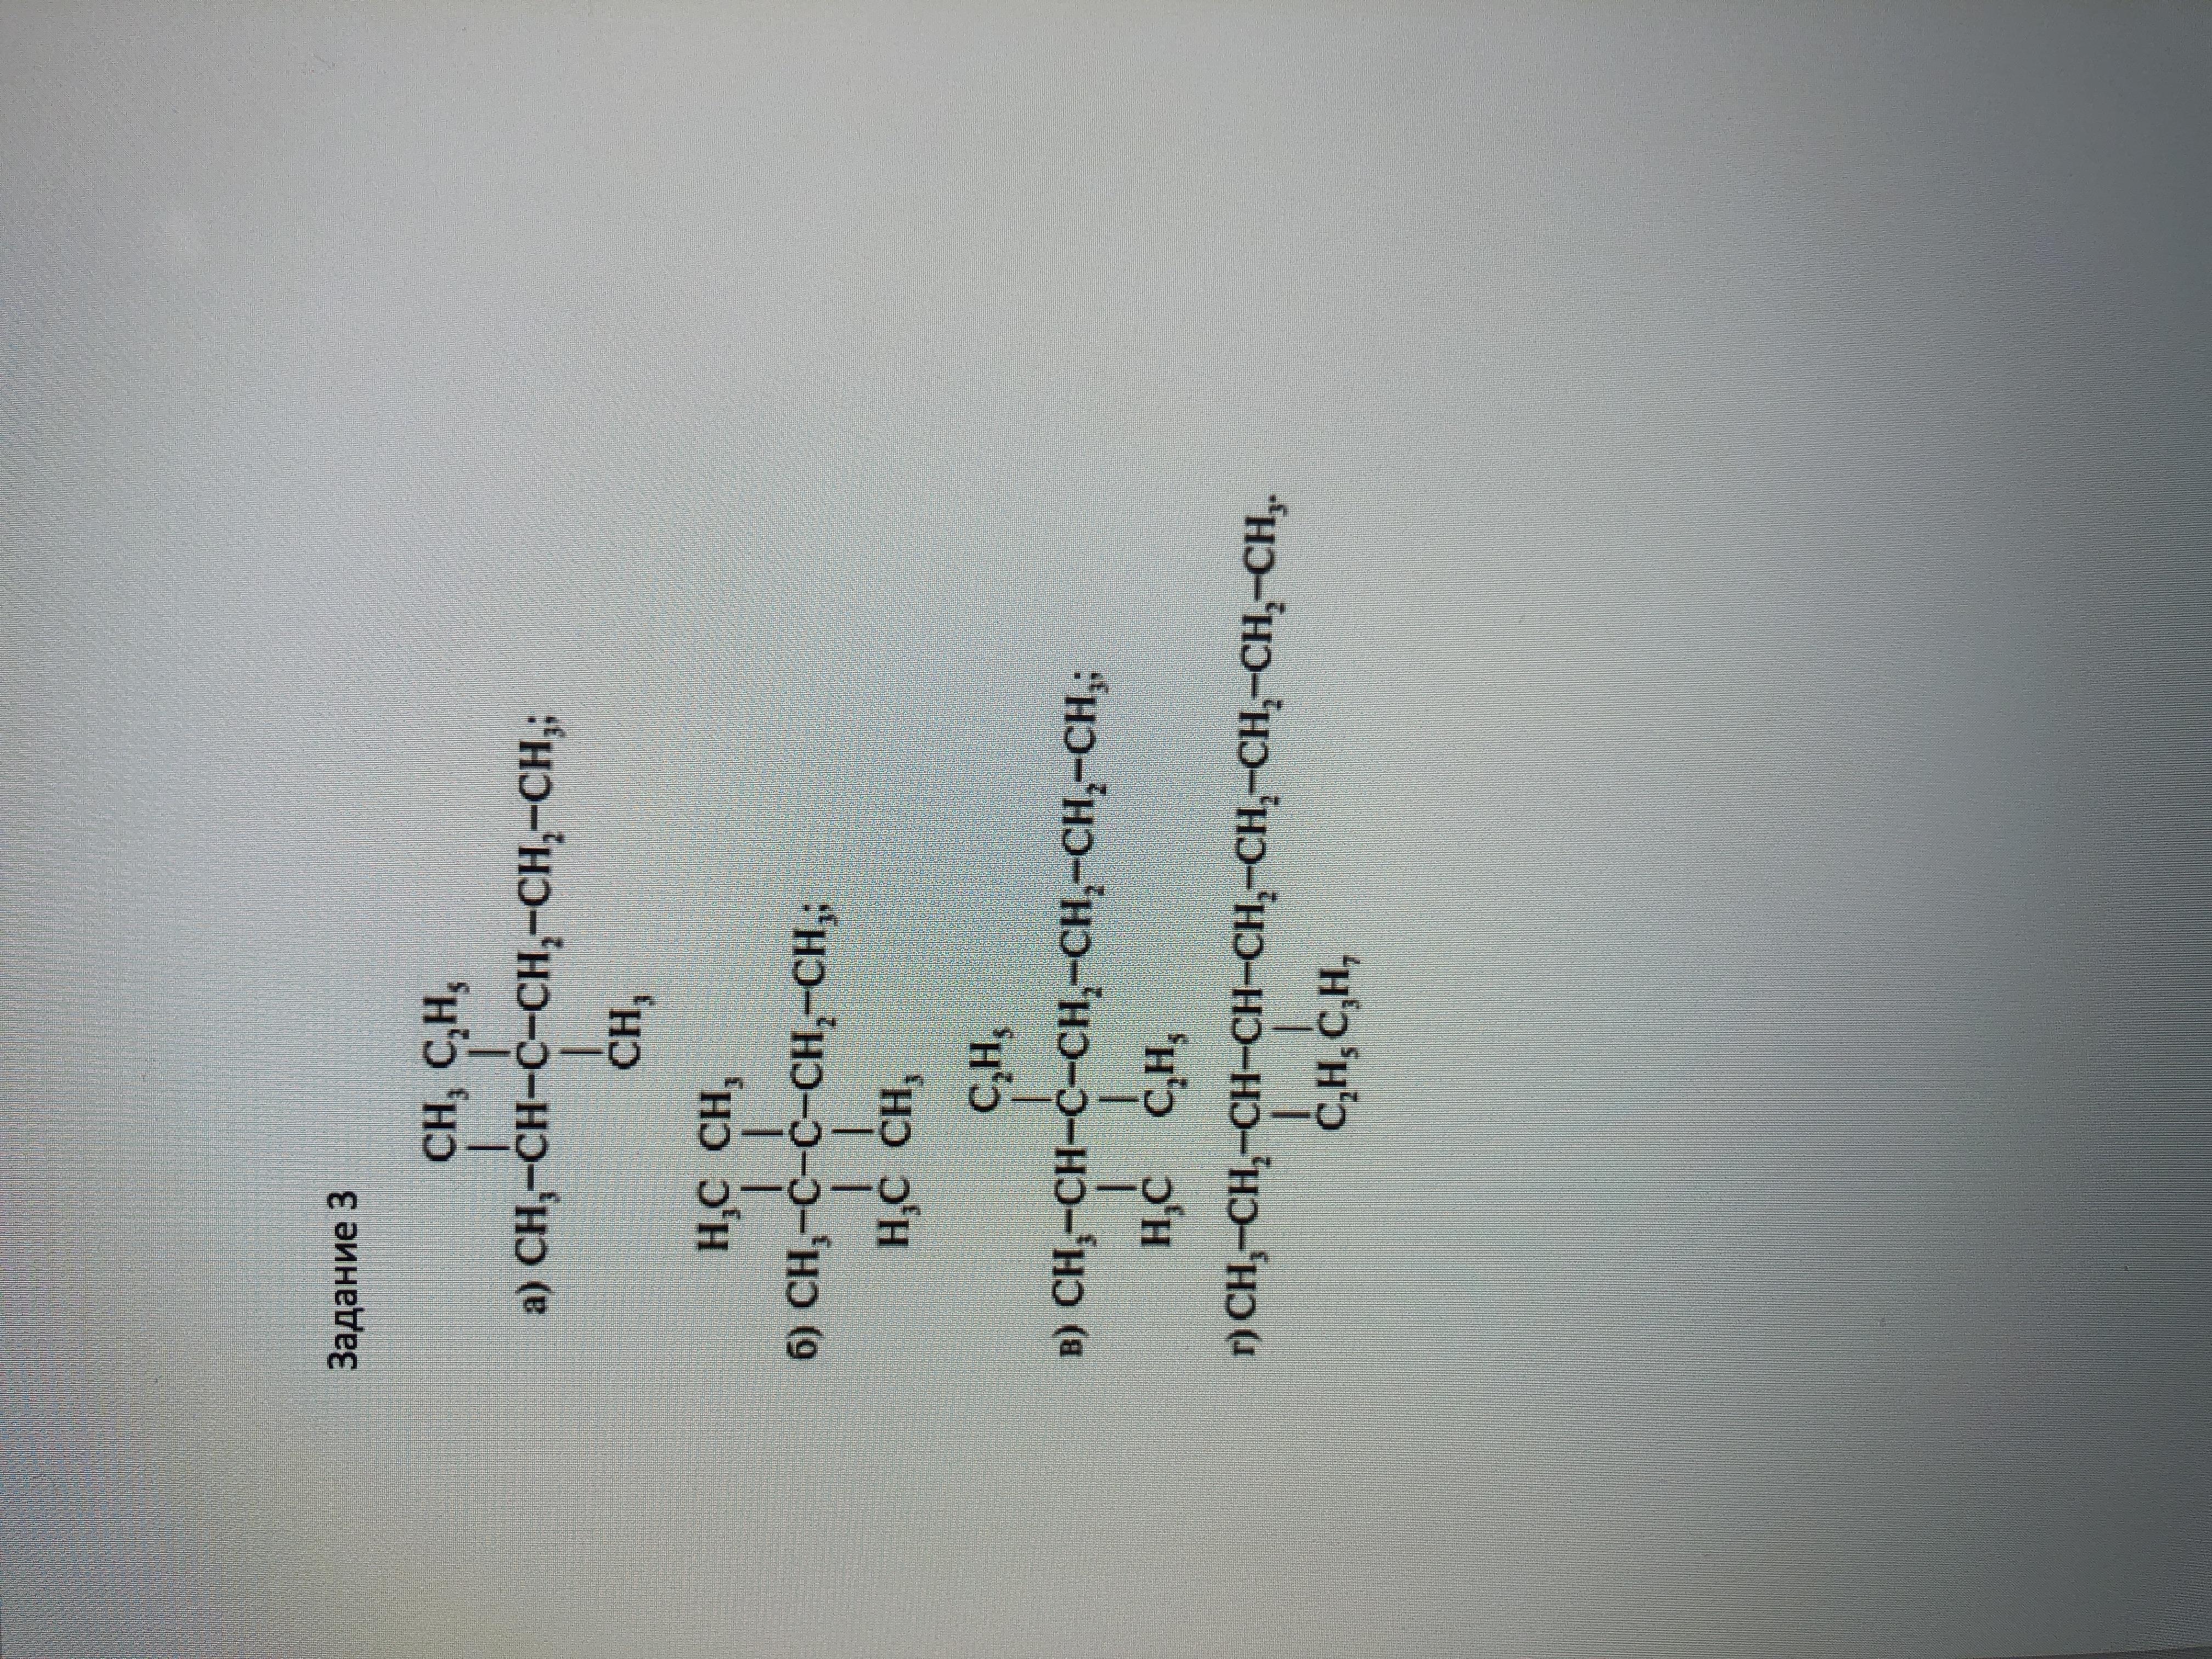 Задание 3
CH₃ C₂H₅
а) CH₃–CH–C–CH₂–CH₂–CH₃;
CH₃
H₃C CH₃
б) CH₃–C–C–CH₂–CH₃;
H₃C CH₃
C₂H₅
в) CH₃–CH–C–CH₂–CH₂–CH₂–CH₃;
H₃C C₂H₅
г) CH₃–CH₂–CH–CH–CH₂–CH₂–CH₂–CH₂–CH₃.
C₂H₅ C₃H₇